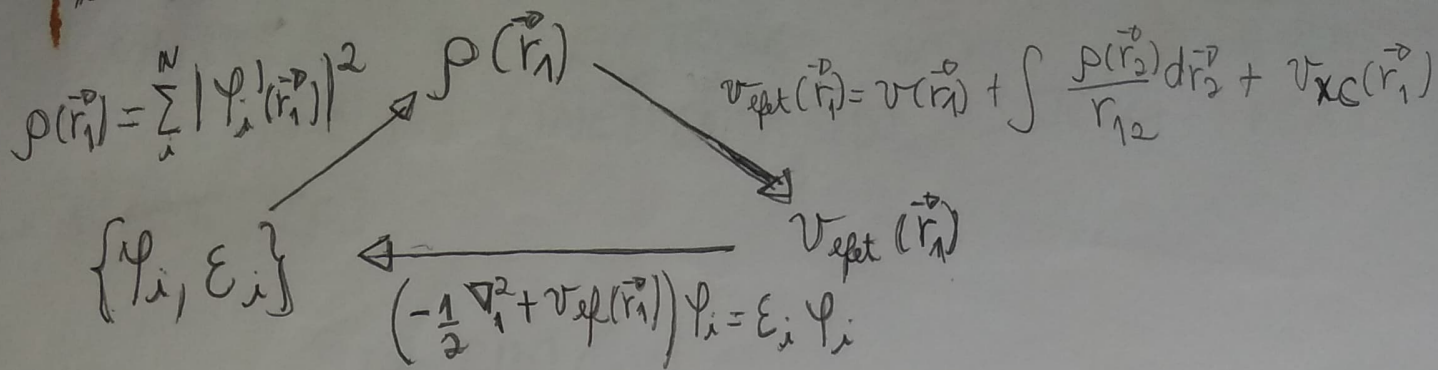 ρ(r⃗₁) = ∑ᵢᴺ |φᵢ(r⃗₁)|²
ρ(r⃗₁)
v_efet(r⃗₁) = v(r⃗₁) + ∫ ρ(r⃗₂)/r₁₂ dr⃗₂ + v_xc(r⃗₁)
{φᵢ, εᵢ}
v_efet(r⃗₁)
(-1/2 ∇₁² + v_ef(r⃗₁)) φᵢ = εᵢ φᵢ